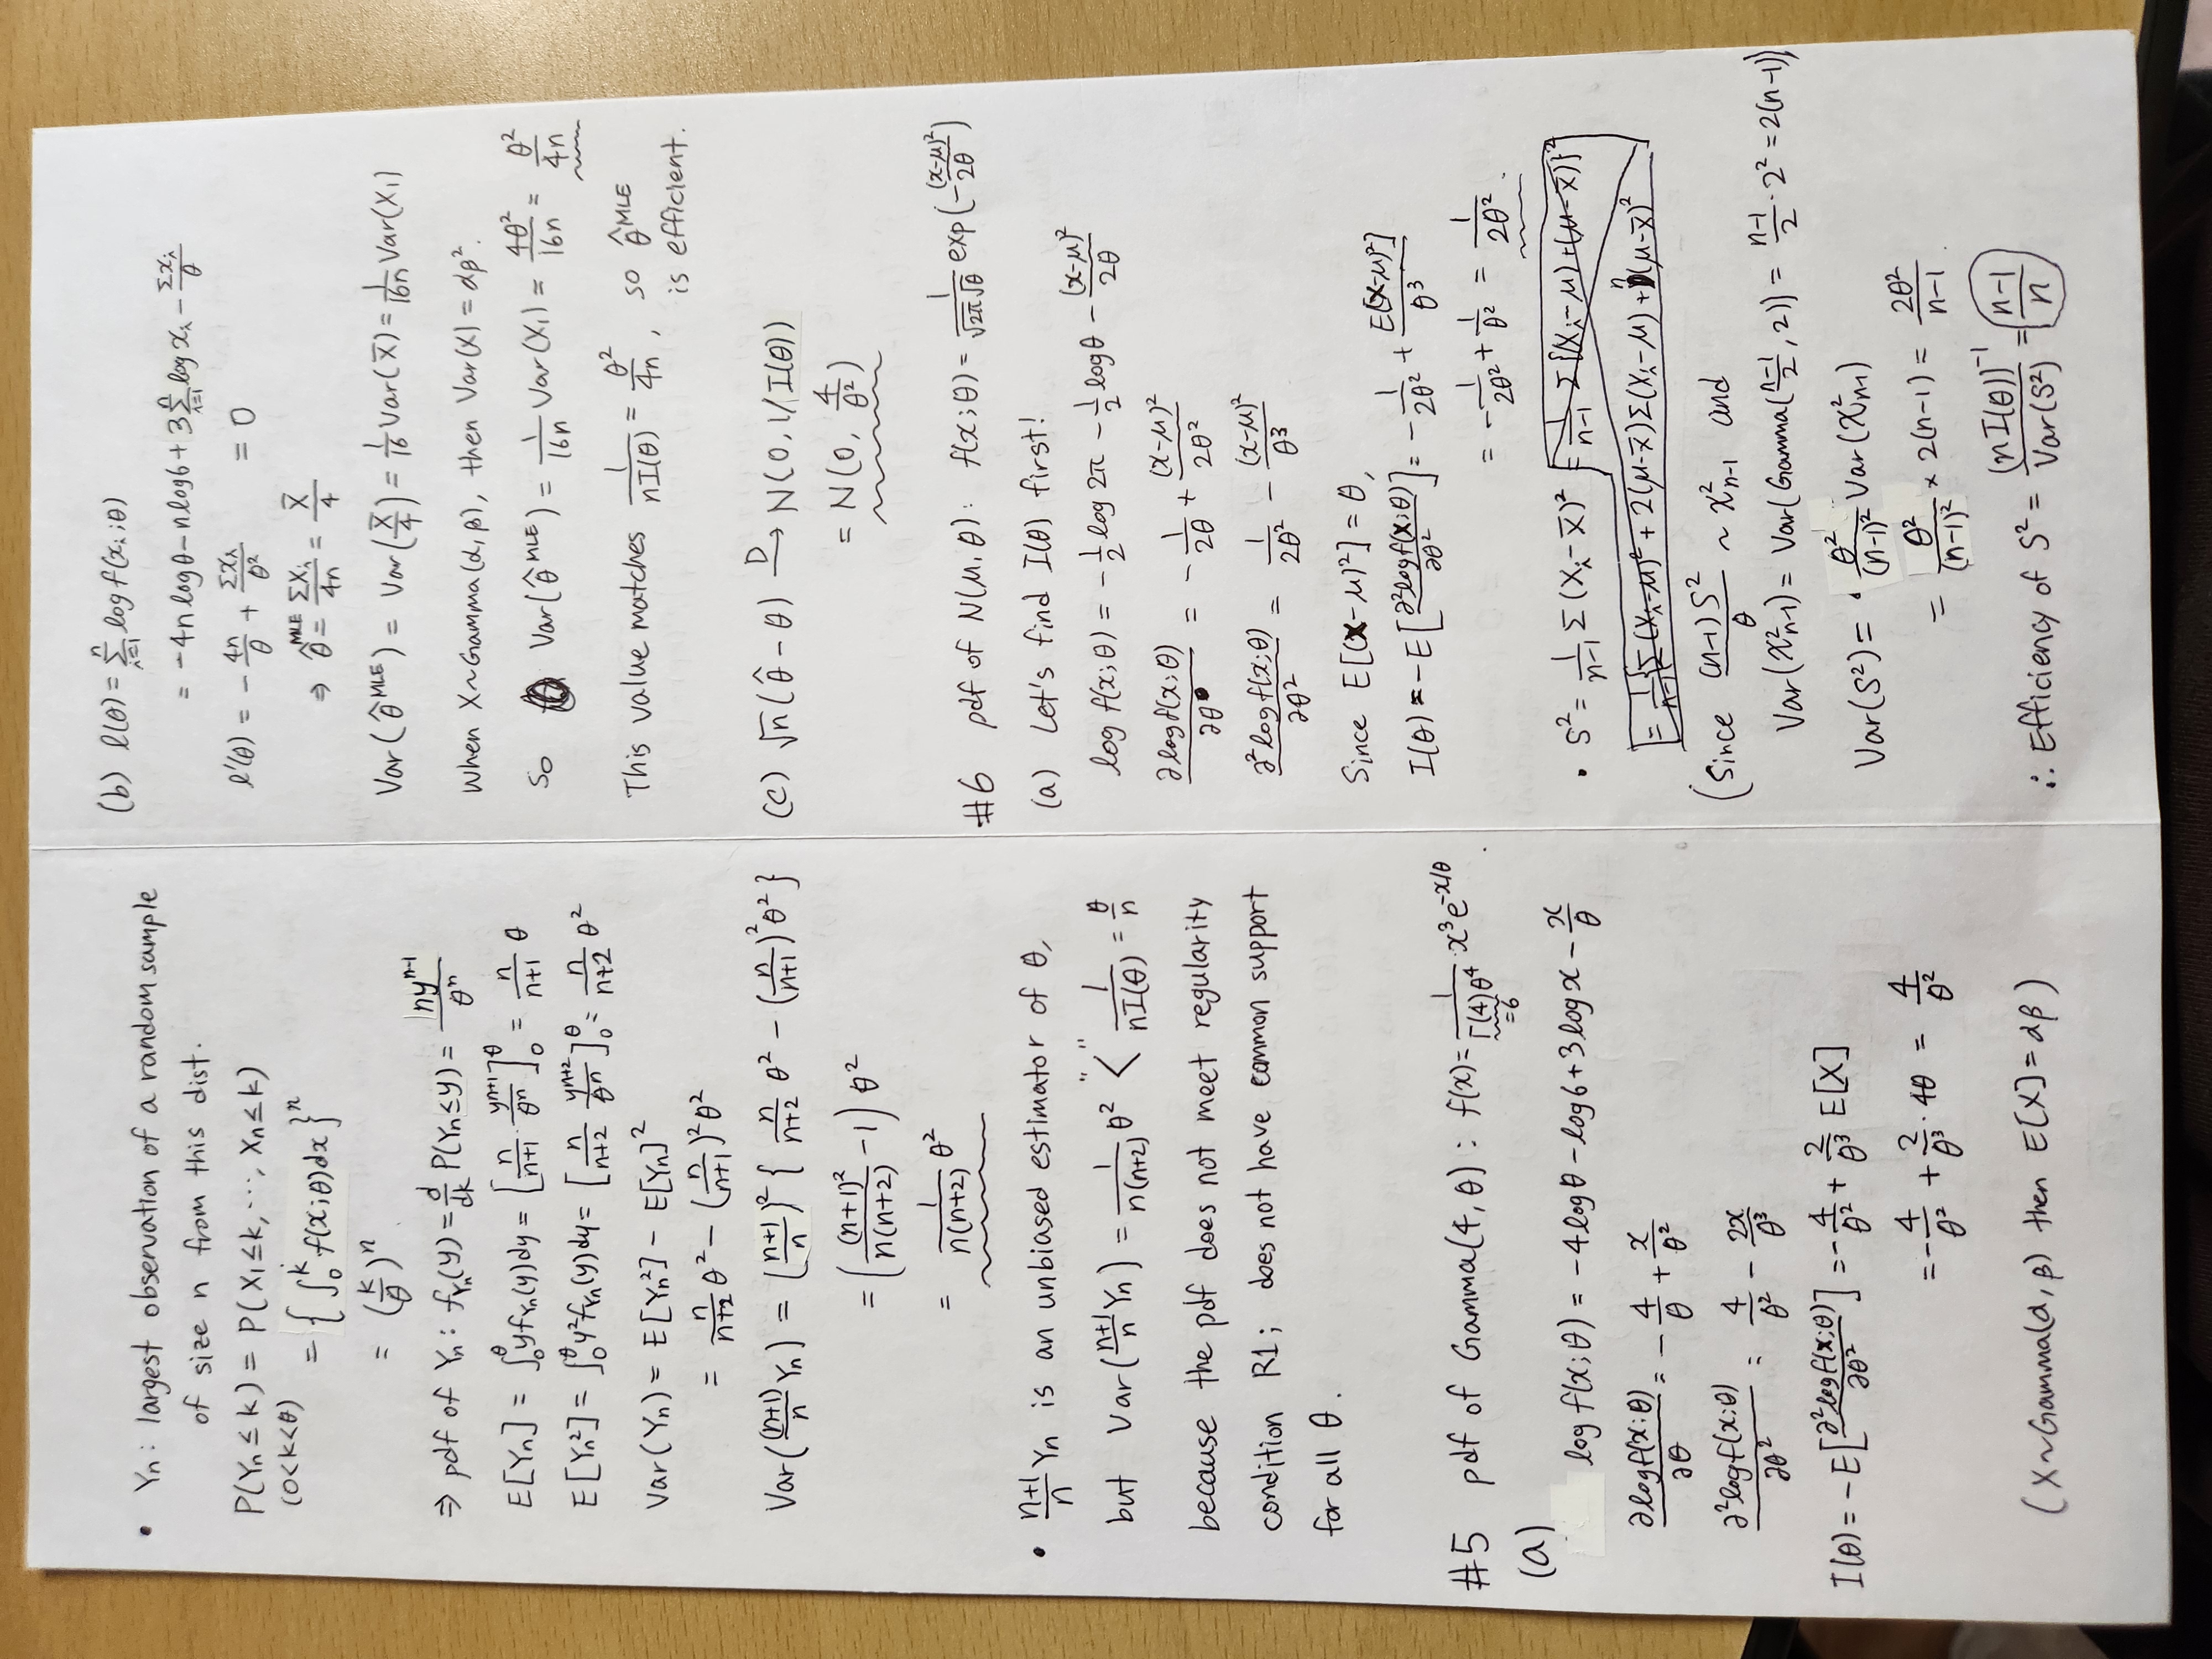 • Yn: largest observation of a random sample
of size n from this dist.
P(Yn ≤ k) = P(X1 ≤ k, ⋯, Xn ≤ k)
(0<k<θ)
= { ∫₀ᵏ f(x;θ)dx }ⁿ
= (k/θ)ⁿ
⇒ pdf of Yn: f_Yn(y) = d/dk P(Yn ≤ y) = ny^(n-1)/θⁿ
E[Yn] = ∫₀^θ y f_Yn(y)dy = [n/(n+1) y^(n+1)/θⁿ]₀^θ = n/(n+1) θ
E[Yn²] = ∫₀^θ y² f_Yn(y)dy = [n/(n+2) y^(n+2)/θⁿ]₀^θ = n/(n+2) θ²
Var(Yn) = E[Yn²] - E[Yn]²
= n/(n+2) θ² - (n/(n+1))² θ²
Var((n+1)/n Yn) = ((n+1)/n)² { n/(n+2) θ² - (n/(n+1))² θ² }
= ((n+1)²/(n(n+2)) - 1) θ²
= 1/(n(n+2)) θ²
• (n+1)/n Yn is an unbiased estimator of θ,
but Var((n+1)/n Yn) = 1/(n(n+2)) θ² "<" 1/(nI(θ)) = θ/n
because the pdf does not meet regularity
condition R1; does not have common support
for all θ.
#5 pdf of Gamma(4, θ): f(x) = 1/(Γ(4)θ⁴) · x³e^(-x/θ).
=6
(a) log f(x;θ) = -4logθ - log6 + 3logx - x/θ
∂logf(x;θ)/∂θ = -4/θ + x/θ²
∂²logf(x;θ)/∂θ² = 4/θ² - 2x/θ³
I(θ) = -E[∂²logf(x;θ)/∂θ²] = -4/θ² + 2/θ³ E[X]
= -4/θ² + 2/θ³ · 4θ = 4/θ²
(X~Gamma(α, β) then E[X] = αβ)
(b) l(θ) = Σᵢ₌₁ⁿ log f(xᵢ;θ)
= -4n logθ - n log6 + 3Σᵢ₌₁ⁿ log xᵢ - Σxᵢ/θ
l'(θ) = -4n/θ + Σxᵢ/θ² = 0
⇒ θ̂^MLE = ΣXᵢ/4n = X̄/4
Var(θ̂^MLE) = Var(X̄/4) = 1/16 Var(X̄) = 1/16n Var(X1)
when X~Gamma(α, β), then Var(X) = αβ².
so Var(θ̂^MLE) = 1/16n Var(X1) = 4θ²/16n = θ²/4n
This value matches 1/(nI(θ)) = θ²/4n, so θ̂^MLE
is efficient.
(c) √n(θ̂ - θ) →D N(0, 1/I(θ))
= N(0, 4/θ²)
#6 pdf of N(μ, θ): f(x;θ) = 1/(√2π √θ) exp(-(x-μ)²/2θ)
(a) Let's find I(θ) first!
log f(x;θ) = -1/2 log 2π - 1/2 logθ - (x-μ)²/2θ
∂logf(x;θ)/∂θ = -1/2θ + (x-μ)²/2θ²
∂²logf(x;θ)/∂θ² = 1/2θ² - (x-μ)²/θ³
Since E[(X-μ)²] = θ,
I(θ) = -E[∂²logf(x;θ)/∂θ²] = -1/2θ² + E[(X-μ)²]/θ³
= -1/2θ² + 1/θ² = 1/2θ².
• S² = 1/(n-1) Σ(Xᵢ-X̄)² = 1/(n-1) Σ{(Xᵢ-μ)+(μ-X̄)}²
= 1/(n-1) Σ(Xᵢ-μ)² + 2(μ-X̄)Σ(Xᵢ-μ) + n(μ-X̄)²
(Since (n-1)S²/θ ~ χ²n-1 and
Var(χ²n-1) = Var(Gamma((n-1)/2, 2)) = (n-1)/2 · 2² = 2(n-1))
Var(S²) = θ²/(n-1)² Var(χ²n-1)
= θ²/(n-1)² × 2(n-1) = 2θ²/(n-1).
∴ Efficiency of S² = (nI(θ))⁻¹/Var(S²) = (n-1)/n